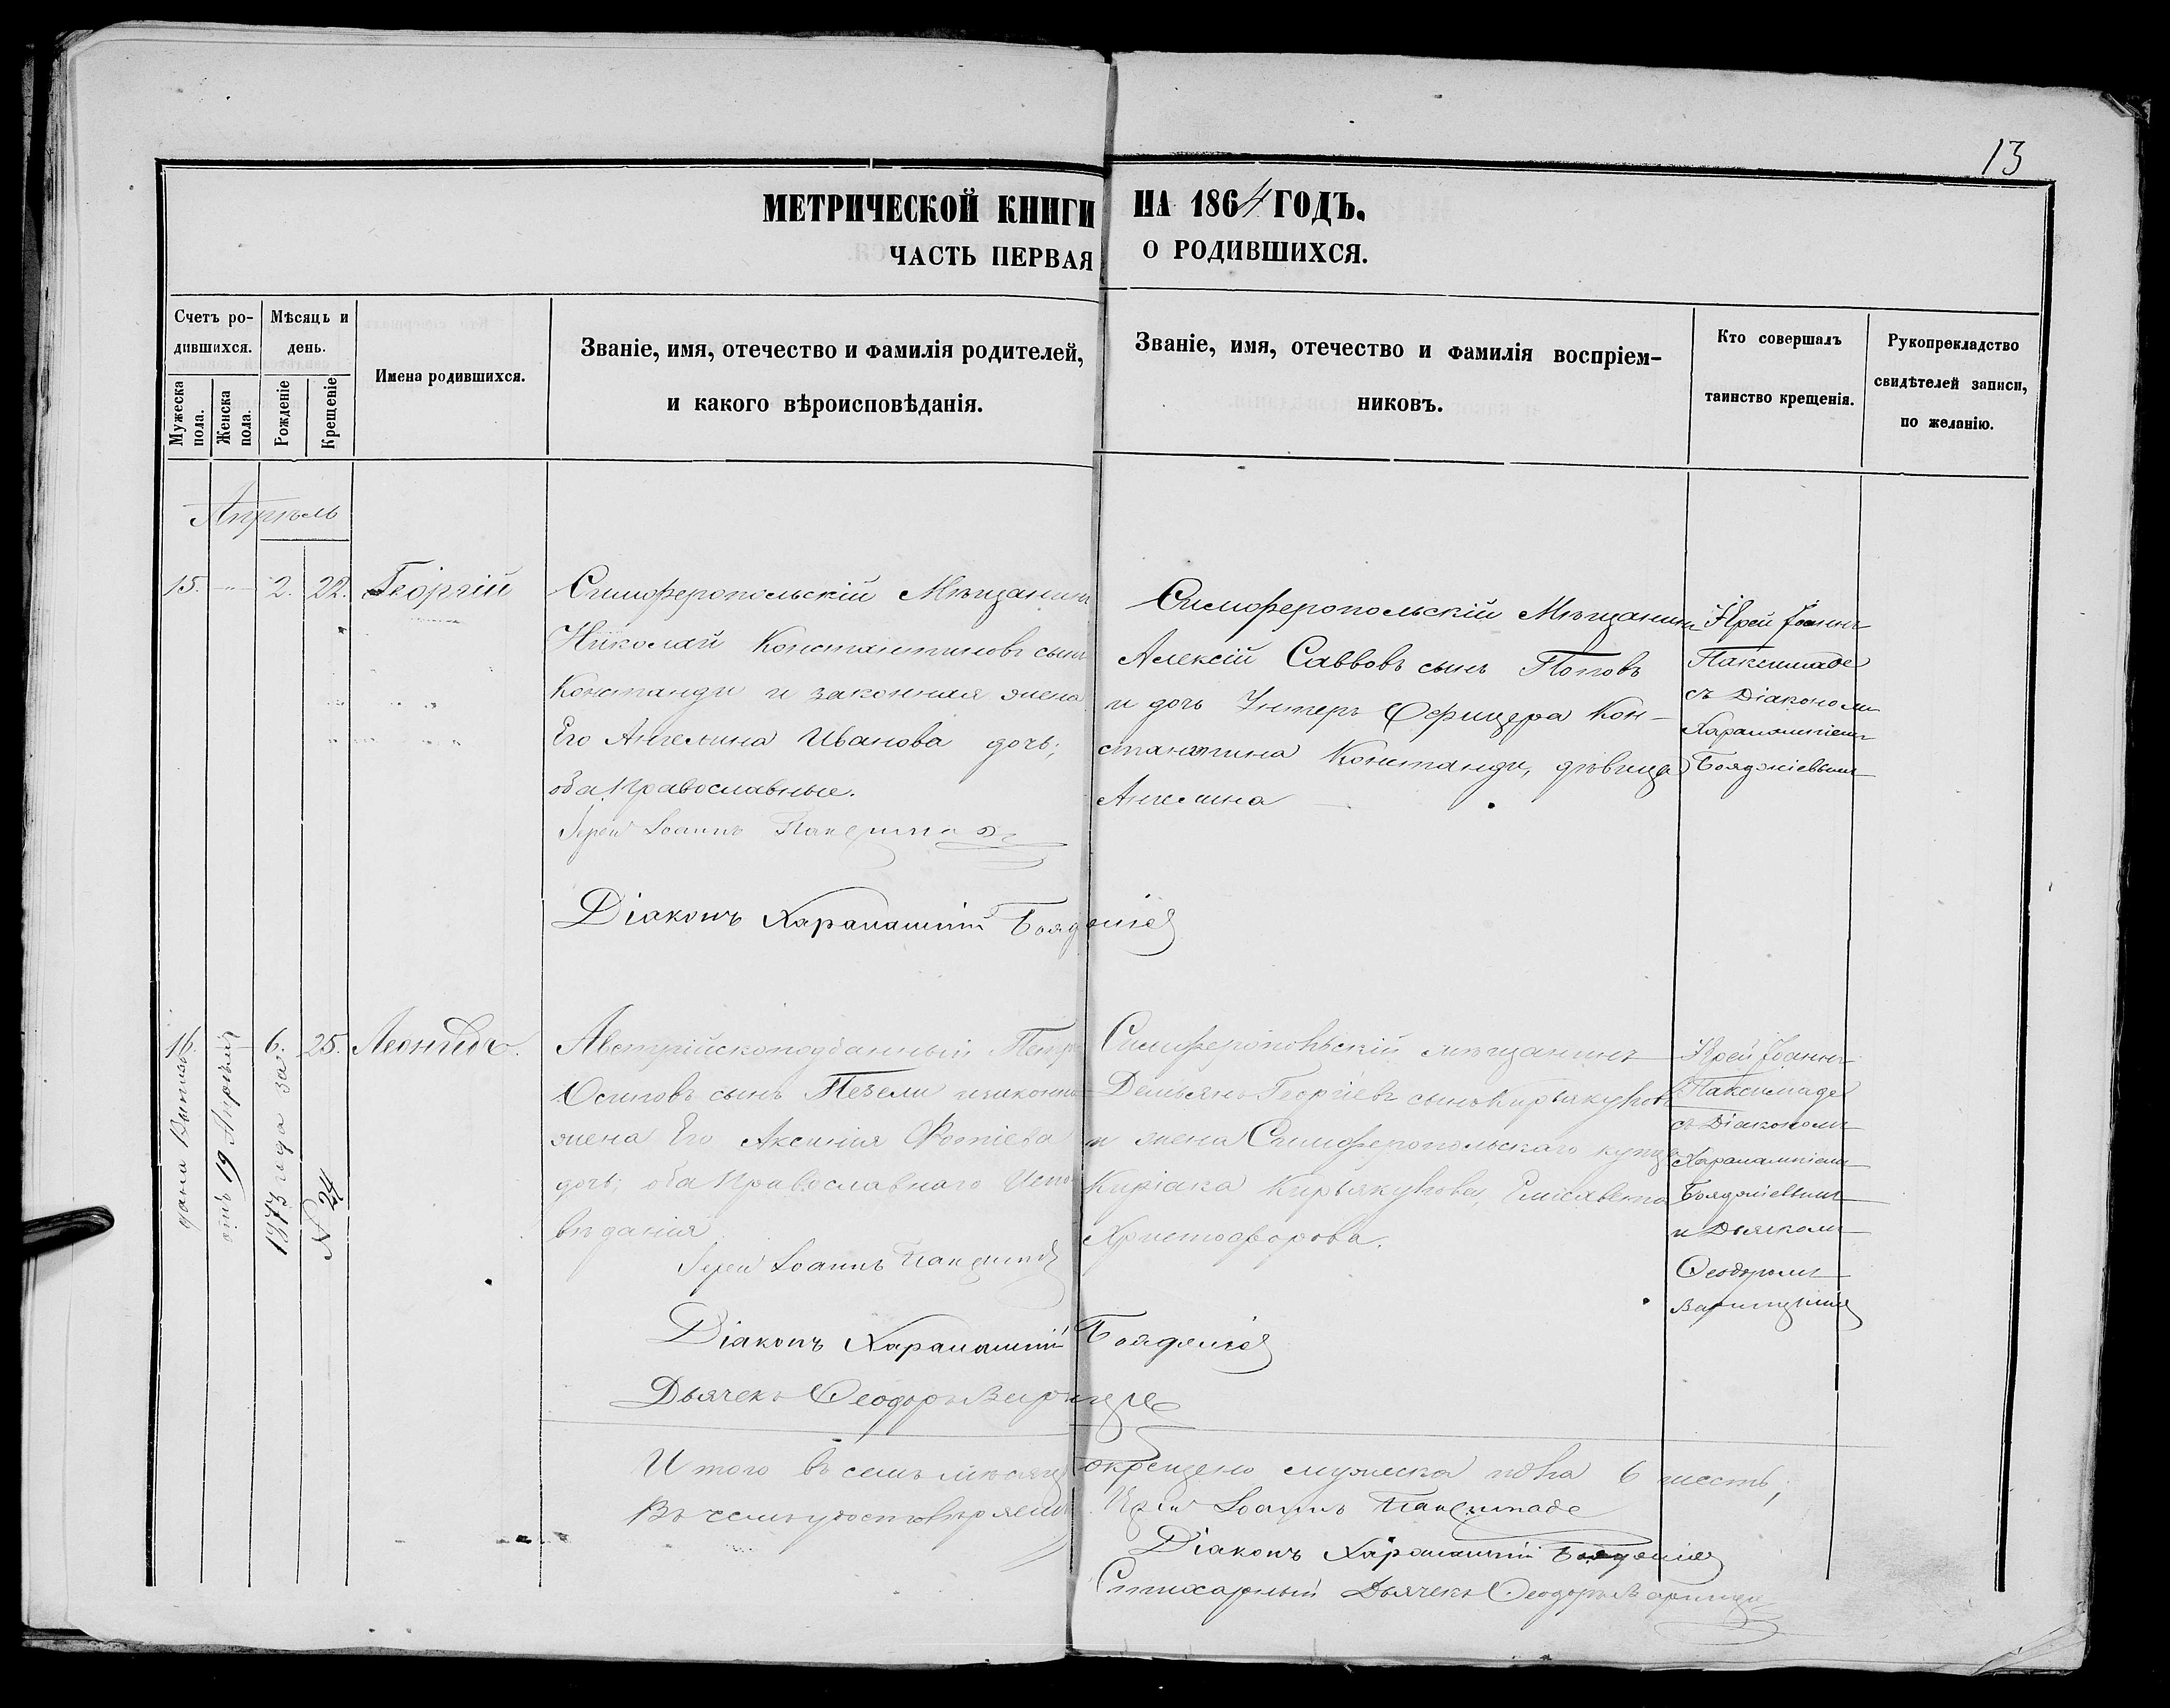 13
МЕТРИЧЕСКОЙ КНИГИ НА 1864 ГОДЪ.
ЧАСТЬ ПЕРВАЯ О РОДИВШИХСЯ.
Счетъ родившихся.
Мужеска пола.
Женска пола.
Мѣсяць и день.
Рожденіе
Крещеніе
Имена родившихся.
Званіе, имя, отечество и фамилія родителей,
и какого вѣроисповѣданія.
Званіе, имя, отечество и фамилія воспріем-
никовъ.
Кто совершалъ
таинство крещенія.
Рукоприкладство
свидѣтелей записи,
по желанію.
Апрѣль
15. 2. 22. Георгій
Симферопольскій Мѣщанинъ
Николай Константиновъ сынъ
Констанди и законная жена
Его Ангелина Иванова дочь;
оба Православные.
Іерей Іоаннъ
Діаконъ Харалампій
Симферопольскій Мѣщанинъ
Алексій Саввовъ сынъ Поповъ
и дочь Унтеръ Офицера Кон-
стантина Констанди, дѣвица
Ангелина
Іерей Іоаннъ
Паксимаде
съ Діакономъ
Харалампіемъ
Бояджіевымъ
16. 6. 25. Леонидъ.
дана Выпись
отцу 19 Апрѣля
1873 года за
N 24
Австрійскоподданный Петръ
Осиповъ сынъ Пезели и законная
жена Его Аксинія Фотіева
дочь; оба Православнаго Испо-
вѣданія
Іерей Іоаннъ
Діаконъ Харалампій
Дьячекъ Феодоръ
Симферопольскій мѣщанинъ
Демьянъ Георгіевъ сынъ Кирьякуловъ
и жена Симферопольскаго купца
Киріака Кирьякулова, Елисавета
Христофорова.
Іерей Іоаннъ
Паксимаде
съ Діакономъ
Харалампіемъ
Бояджіевымъ
и Дьячкомъ
Феодоромъ
Итого въ семъ мѣсяцѣ окрещено мужеска пола 6 шесть;
Въ чемъ удостовѣряемъ Іерей Іоаннъ Паксимаде
Діаконъ Харалампій
Стихарный Дьячекъ Феодоръ